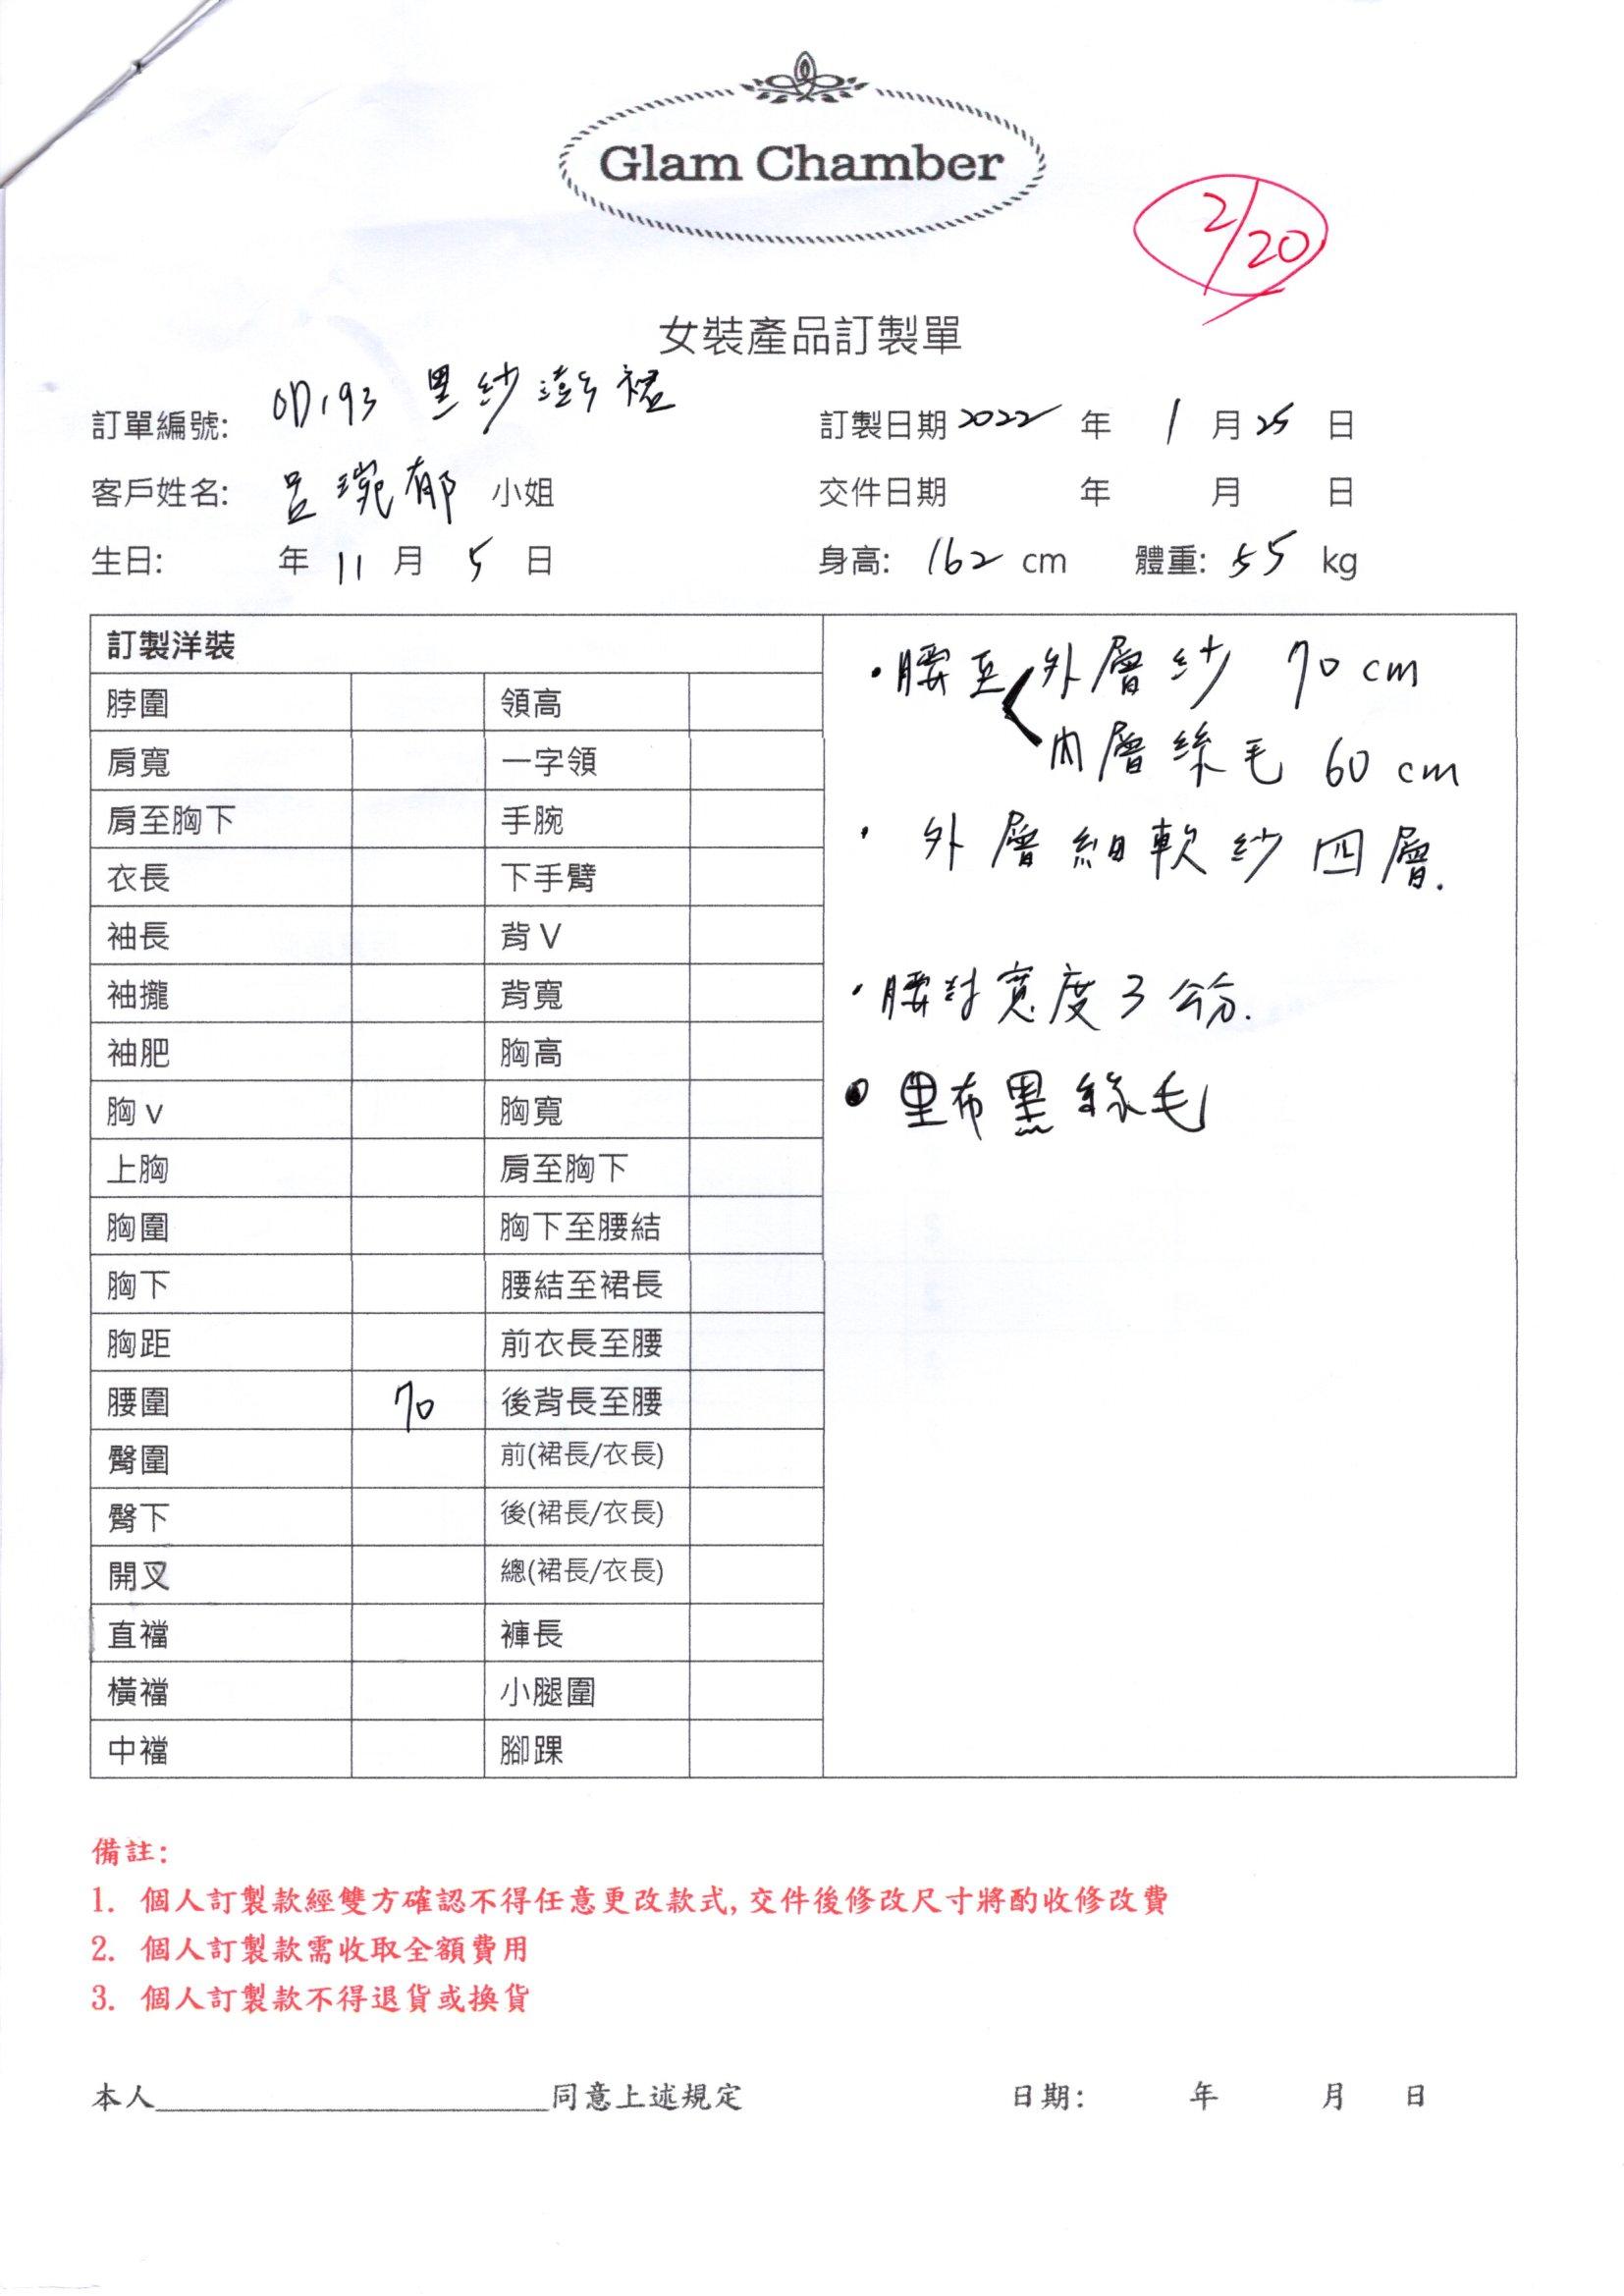 Glam Chamber
2/20
女裝產品訂製單
訂單編號: OD193 黑紗澎裙
訂製日期 2022 年 1 月 25 日
客戶姓名: 呂琬郁 小姐
交件日期 年 月 日
生日: 年 11 月 5 日
身高: 162 cm 體重: 55 kg
訂製洋裝
脖圍 領高
肩寬 一字領
肩至胸下 手腕
衣長 下手臂
袖長 背 V
袖攏 背寬
袖肥 胸高
胸 v 胸寬
上胸 肩至胸下
胸圍 胸下至腰結
胸下 腰結至裙長
胸距 前衣長至腰
腰圍 70 後背長至腰
臀圍 前(裙長/衣長)
臀下 後(裙長/衣長)
開叉 總(裙長/衣長)
直襠 褲長
橫襠 小腿圍
中襠 腳踝
·腰至 外層紗 70 cm
內層絲毛 60 cm
· 外層細軟紗四層.
·腰封寬度3公分.
● 里布黑絲毛
備註:
1. 個人訂製款經雙方確認不得任意更改款式,交件後修改尺寸將酌收修改費
2. 個人訂製款需收取全額費用
3. 個人訂製款不得退貨或換貨
本人________________________同意上述規定
日期: 年 月 日